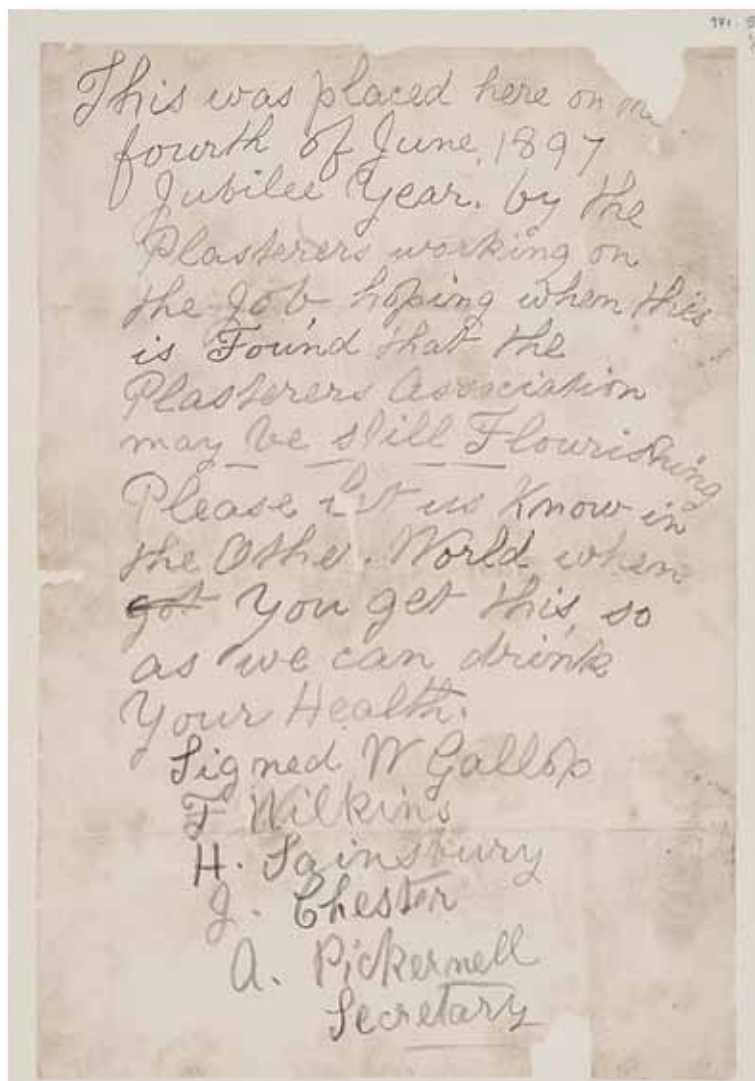 This was placed here on the
fourth of June, 1897
Jubilee Year. by the
Plasterers working on
the Job hoping when this
is Found that the
Plasterers Association
may be still Flourishing
Please let us Know in
the Other. World when
got You get this, so
as we can drink
Your Health.
Signed W Gallop
F Wilkins
H. Sainsbury
J. Chester
A. Pickernell
Secretary